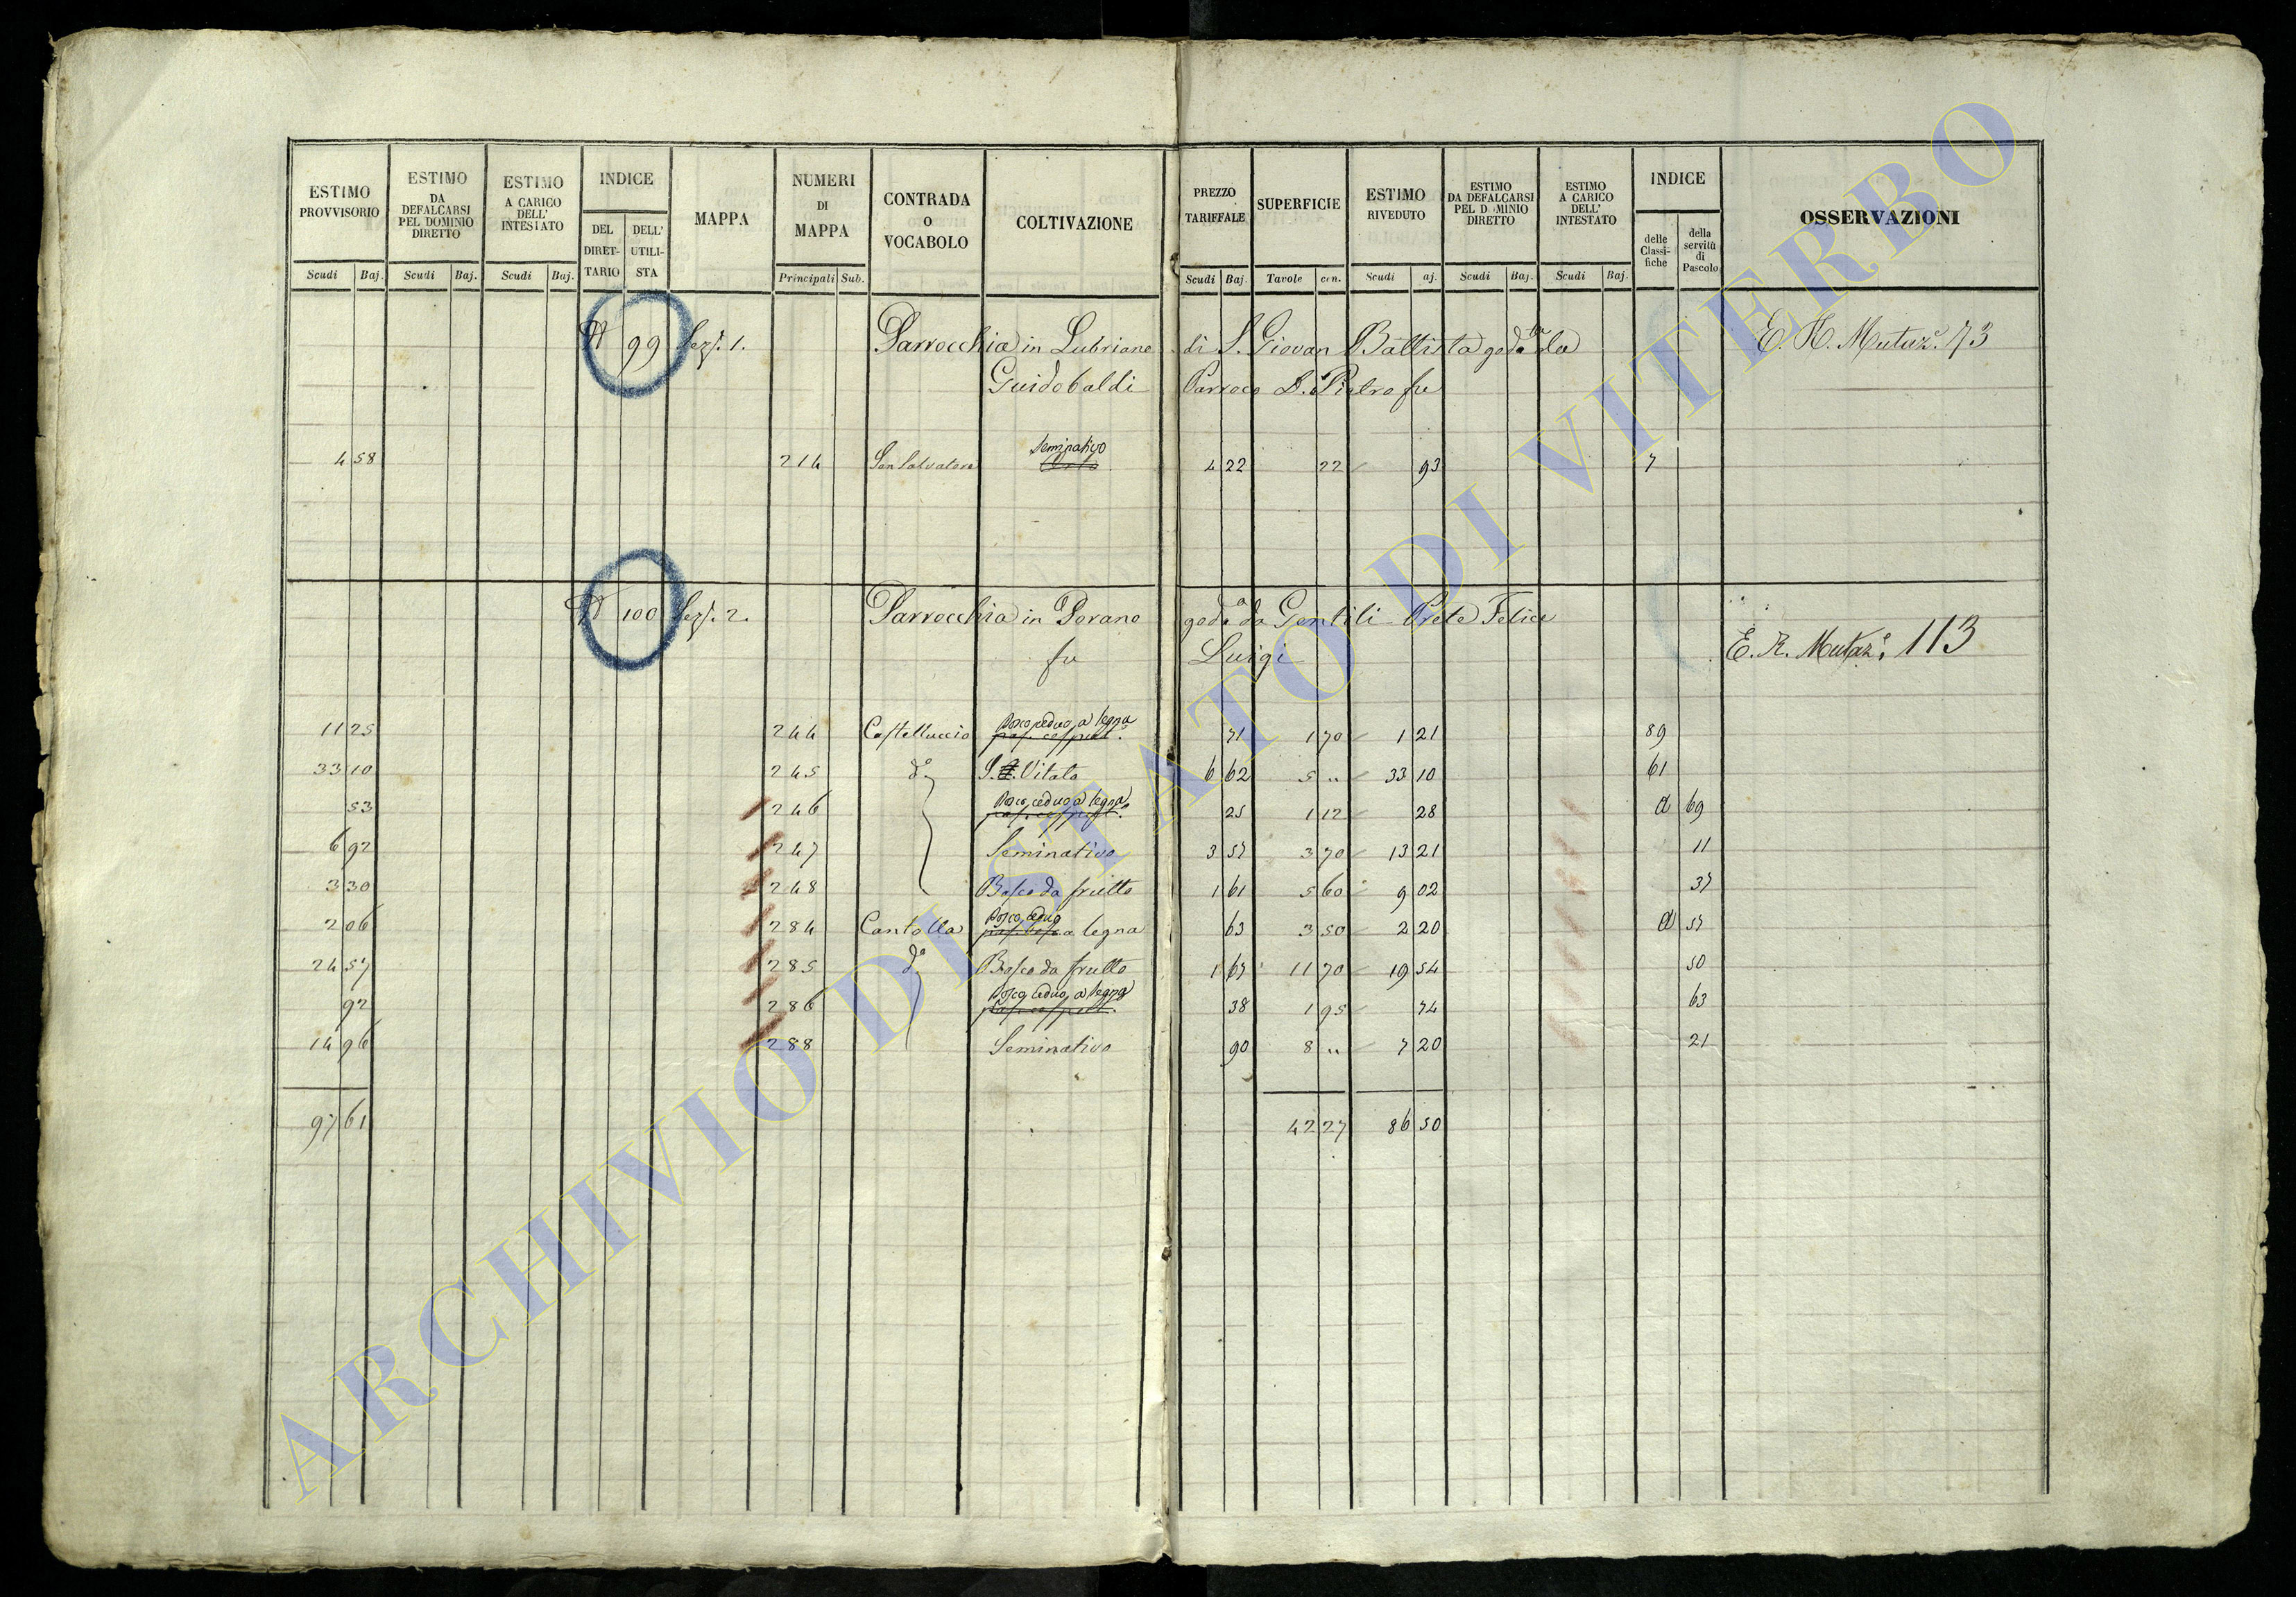 ESTIMO PROVVISORIO Scudi Baj. ESTIMO DA DEFALCARSI PEL DOMINIO DIRETTO Scudi Baj. ESTIMO A CARICO DELL' INTESTATO Scudi Baj. INDICE DEL DIRETTARIO DELL' UTILISTA MAPPA NUMERI DI MAPPA Principali Sub. CONTRADA O VOCABOLO COLTIVAZIONE PREZZO TARIFFALE Scudi Baj. SUPERFICIE Tavole cen. ESTIMO RIVEDUTO Scudi aj. ESTIMO DA DEFALCARSI PEL D MINIO DIRETTO Scudi Baj. ESTIMO A CARICO DELL' INTESTATO Scudi Baj. INDICE delle Classifiche della servitù di Pascolo OSSERVAZIONI
99 Sez. 1. Parrocchia in Lubriano di S. Giovan Battista E. R. Mutaz. 73
Guidobaldi Parroco D. Pietro fu
4 58 214 San Salvatore Seminativo Orto 4 22 22 93 7
100 Sez. 2. Parrocchia in Porano goda da Gentili Prete Felice
fu Luigi E. R. Mutaz. 113
Bosco ceduo a legna
11 25 244 Castelluccio 71 1 70 1 21 89
33 10 245 d.o S. Vitato 6 62 5 " 33 10 61
Bosco ceduo a legna
53 246 25 1 12 28 a 69
6 92 247 Seminativo 3 57 3 70 13 21 11
3 30 248 Bosco da frutto 1 61 5 60 9 02 37
Bosco ceduo
2 06 284 Cantolla a legna 63 3 50 2 20 a 57
24 57 285 d.o Bosco da frutto 1 67 11 70 19 54 50
Bosco ceduo a legna
92 286 38 1 95 74 63
14 96 288 Seminativo 90 8 " 7 20 21
97 61 42 27 86 50
ARCHIVIO DI STATO DI VITERBO